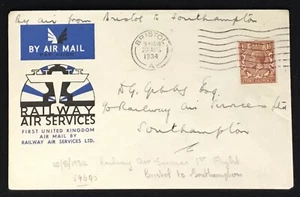 By air from Bristol to Southampton
BY AIR MAIL
BRISTOL
1934
RAILWAY
AIR SERVICES
FIRST UNITED KINGDOM
AIR MAIL BY
RAILWAY AIR SERVICES LTD.
Esq
c/o Railway Air Services Ltd
Southampton
Railway Air Services 1st Flight
Bristol to Southampton